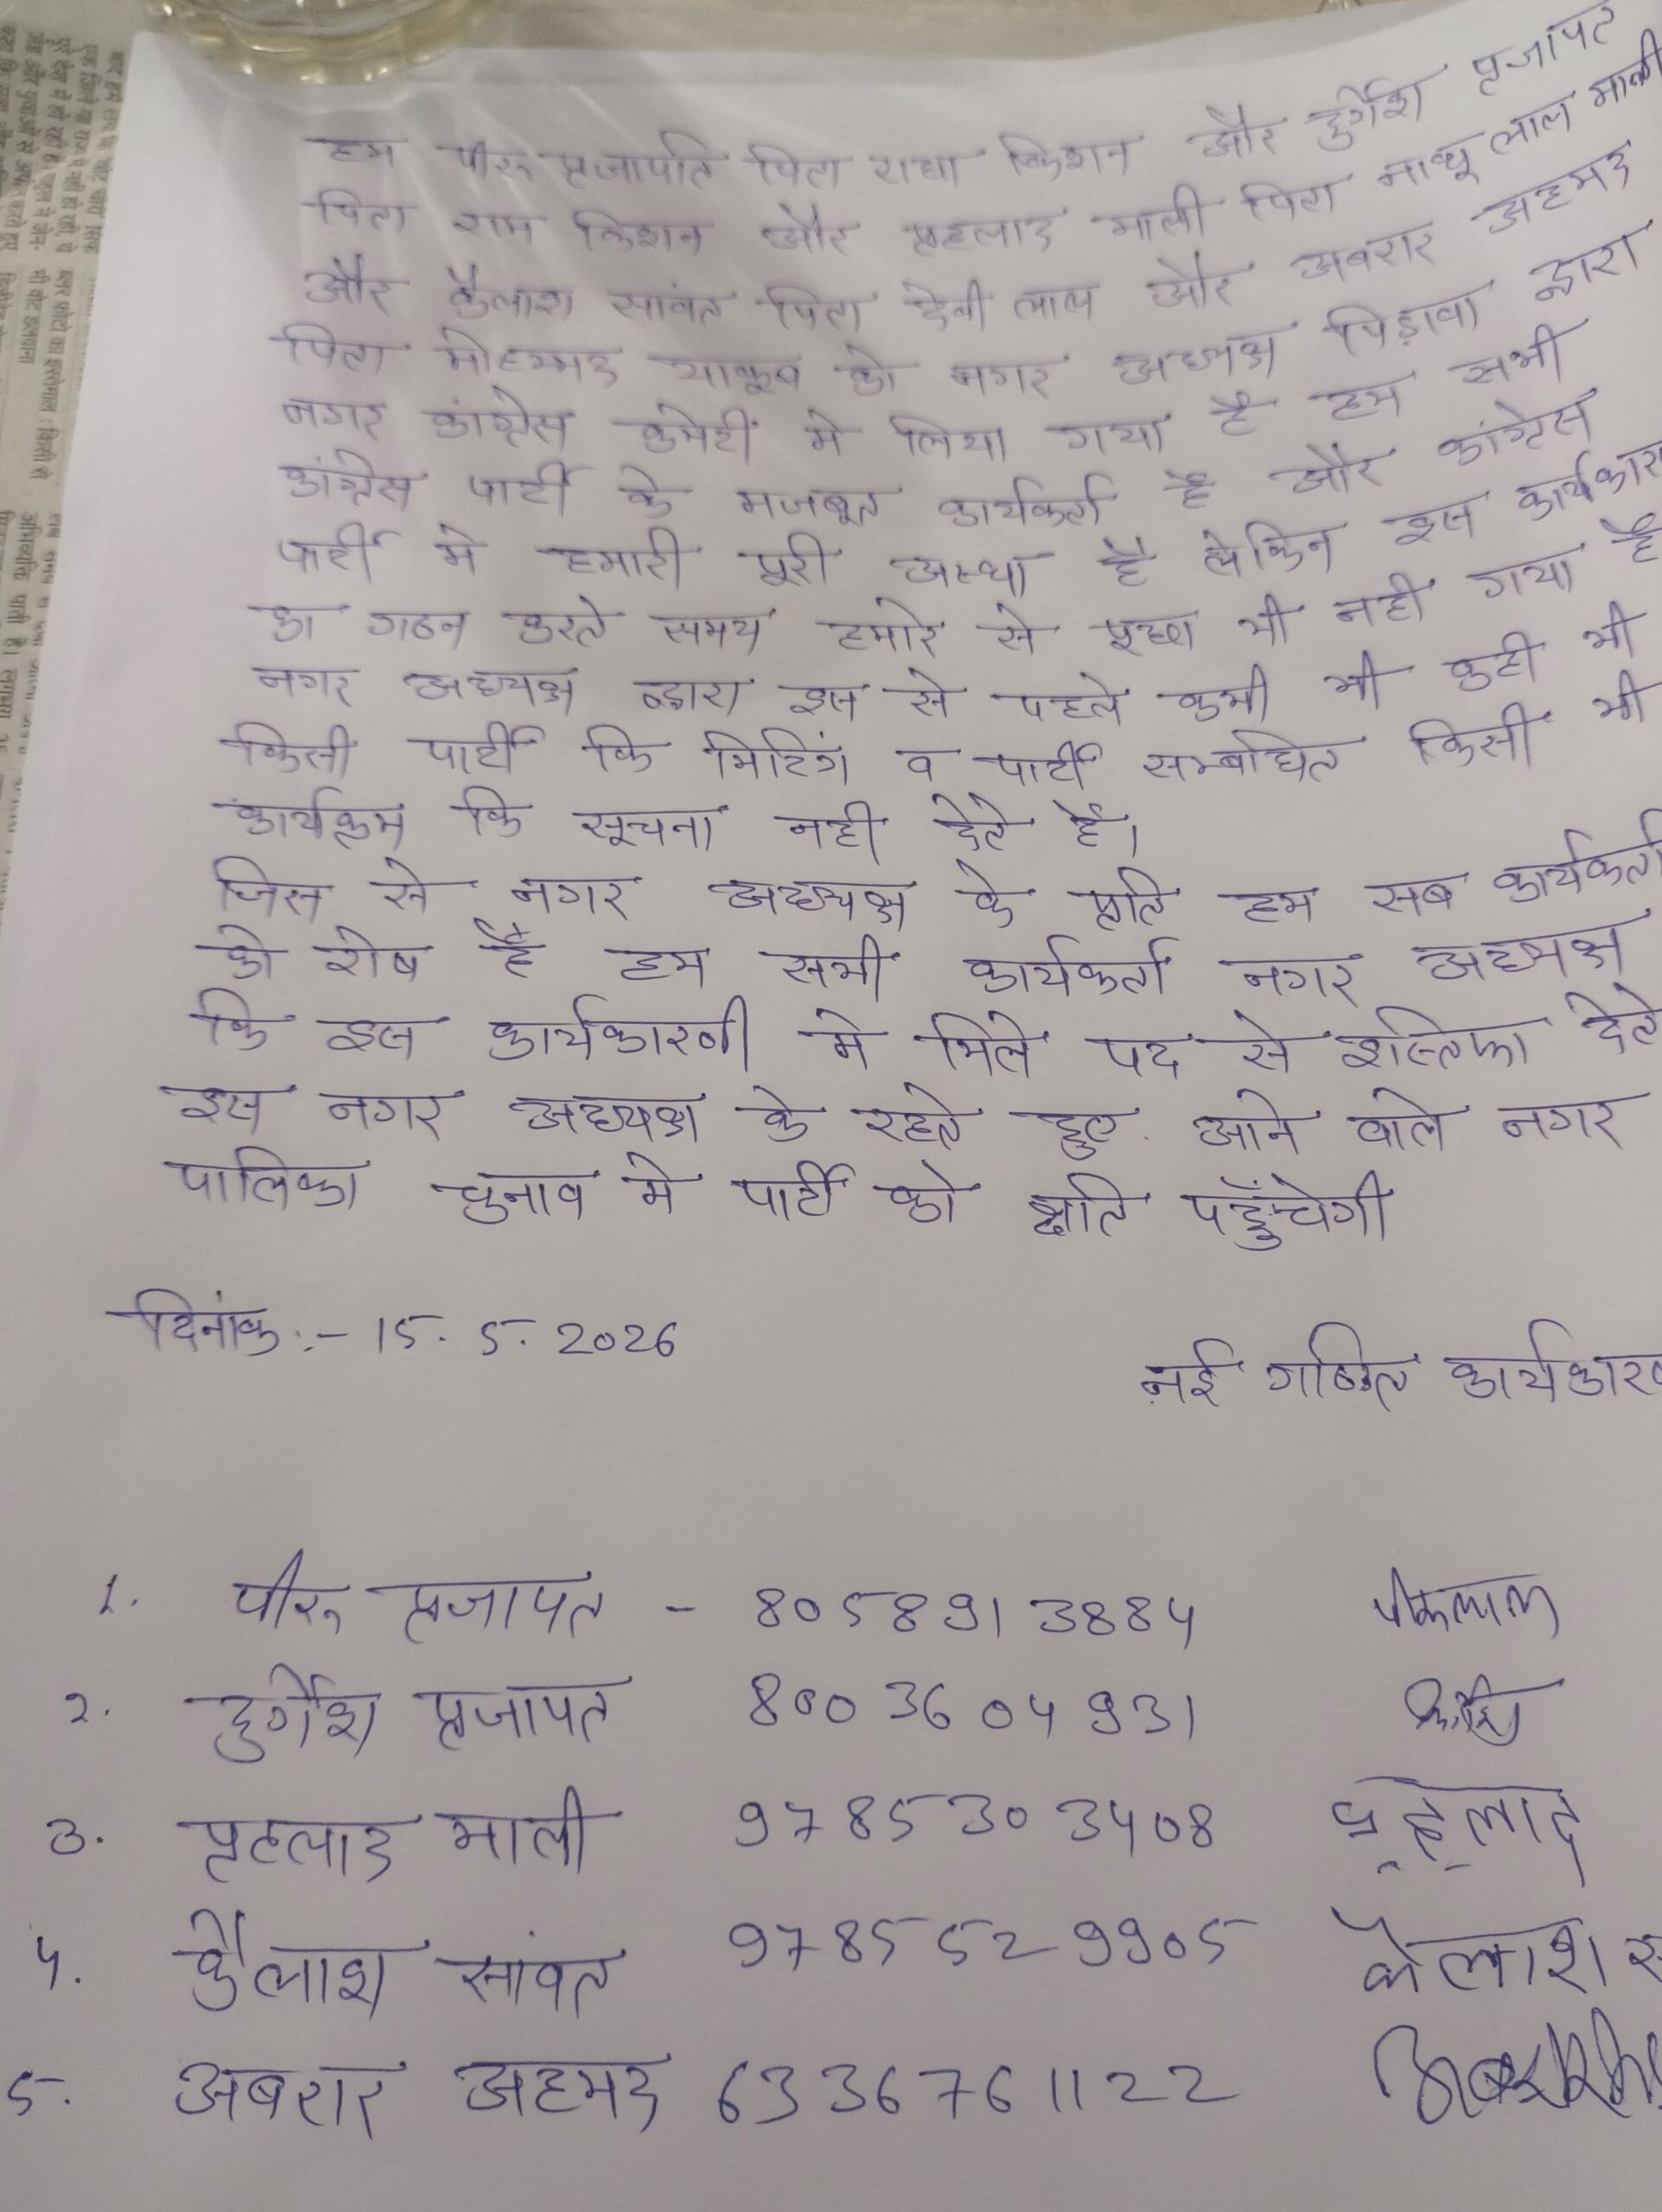 हम पीरु प्रजापति पिता राधा किशन और दुर्गेश प्रजापत
पिता राम किशन और प्रहलाद माली पिता नाथू लाल माली
और कैलाश सांवत पिता देवी लाल और अबरार अहमद
पिता मोहम्मद याकूब को नगर अध्यक्ष पिड़ावा द्वारा
नगर कांग्रेस कमेटी मे लिया गया है हम सभी
कांग्रेस पार्टी के मजबूत कार्यकर्ता है और कांग्रेस
पार्टी मे हमारी पूरी अस्था है लेकिन इस कार्यकार
का गठन करते समय हमारे से पूछा भी नही गया है
नगर अध्यक्ष द्वारा इस से पहले कभी भी कुटी भी
किसी पार्टी कि मिटिंग व पार्टी सम्बंधित किसी भी
कार्यक्रम कि सूचना नही देते है।
जिस से नगर अध्यक्ष के प्रति हम सब कार्यकर्ता
को रोष है हम सभी कार्यकर्ता नगर अध्यक्ष
कि इस कार्यकारणी मे मिले पद से इस्तिफा देते
इस नगर अध्यक्ष के रहते हुए आने वाले नगर
पालिका चुनाव मे पार्टी को क्षति पहुँचेगी
दिनांक :- 15. 5. 2026
नई गठित कार्यकारण
1. पीरु प्रजापत - 8058913884 पीरूलाल
2. दुर्गेश प्रजापत 8003604931
3. प्रहलाद माली 9785303408 प्रहलाद
4. कैलाश सांवत 9785529905 कैलाश स
5. अबरार अहमद 6336761122